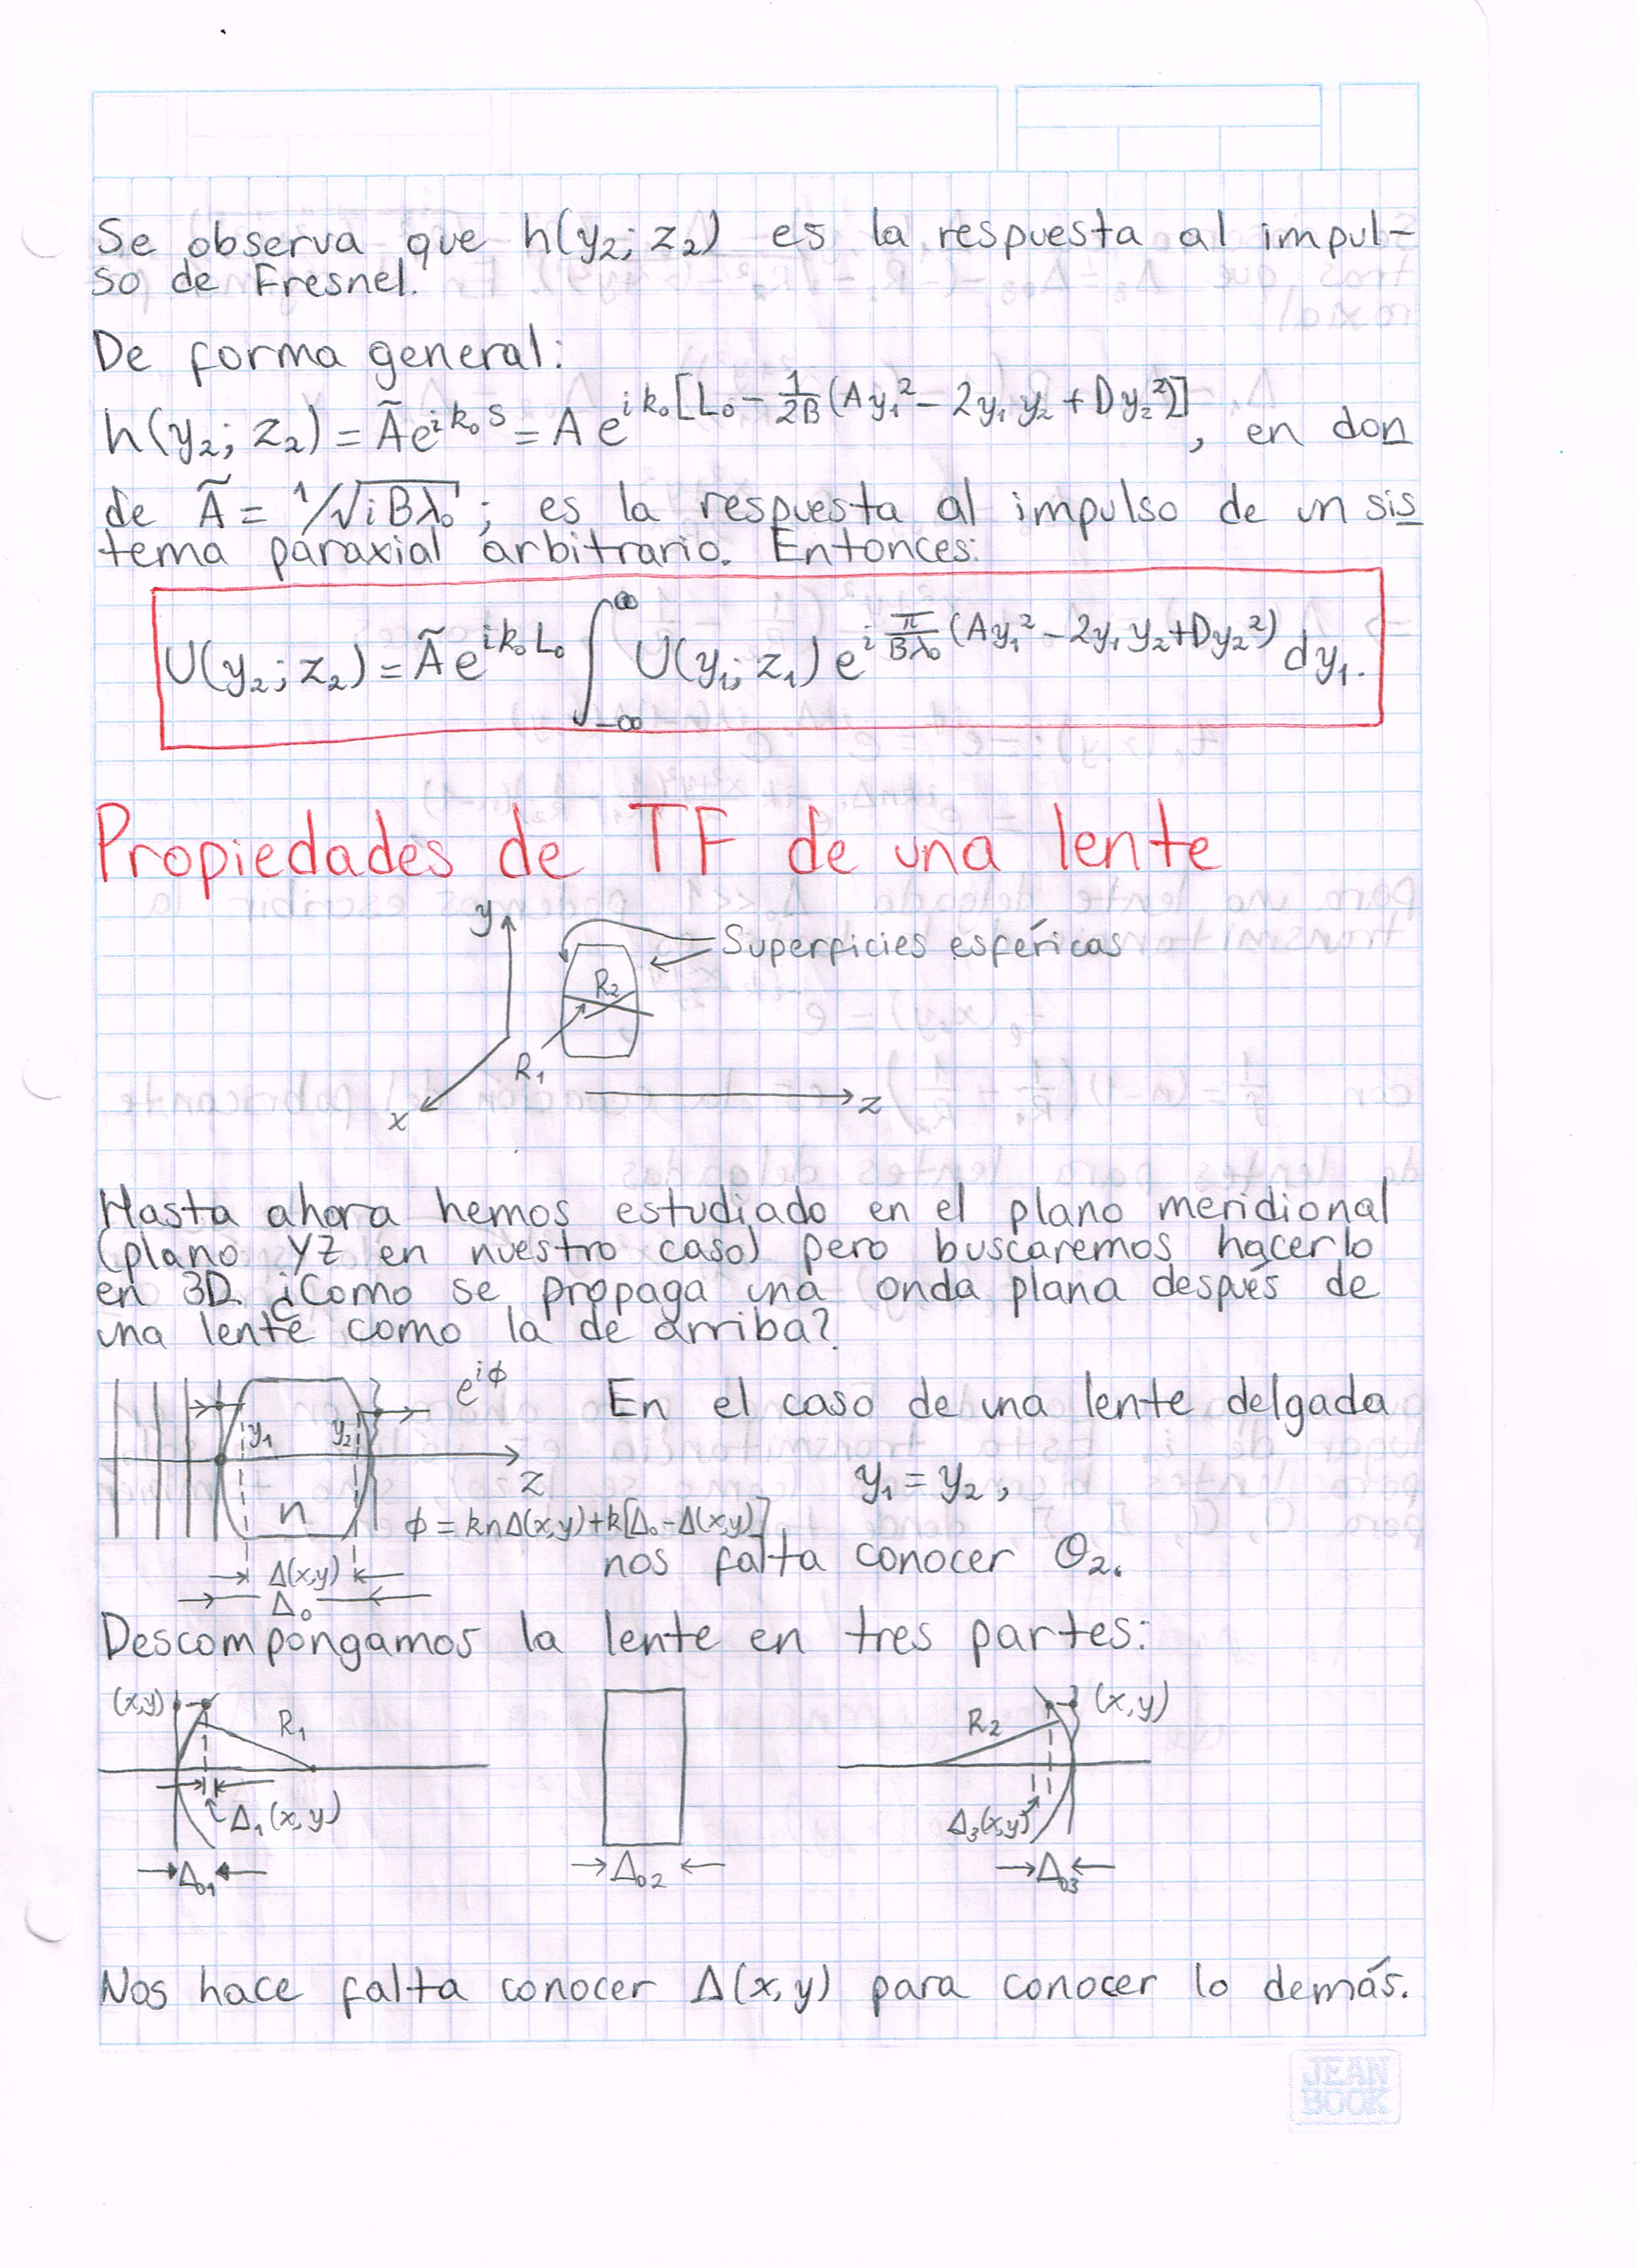 Se observa que h(y₂; z₂) es la respuesta al impul-
so de Fresnel.
De forma general:
h(y₂; z₂) = Ãe^{ik₀S} = A e^{ik₀[L₀ - 1/2B (Ay₁² - 2y₁y₂ + Dy₂²)]}, en don
de Ã = 1/√(iBλ₀); es la respuesta al impulso de un sis
tema paraxial arbitrario. Entonces:
U(y₂; z₂) = Ãe^{ik₀L₀} ∫_{-∞}^{∞} U(y₁; z₁) e^{i π/Bλ₀ (Ay₁² - 2y₁y₂ + Dy₂²)} dy₁.
Propiedades de TF de una lente
y
Superficies esféricas
R₂
R₁
x
z
Hasta ahora hemos estudiado en el plano meridional
(plano YZ en nuestro caso) pero buscaremos hacerlo
en 3D. ¿Como se propaga una onda plana después de
una lente como la de arriba?
e^{iϕ}
En el caso de una lente delgada
y₁ y₂
z
y₁ = y₂,
n
ϕ = knΔ(x,y)+k[Δ₀-Δ(x,y)]
nos falta conocer Θ₂.
Δ(x,y)
Δ₀
Descompongamos la lente en tres partes:
(x,y) R₁
R₂ (x,y)
Δ₁(x,y)
Δ₃(x,y)
Δ₀₁ Δ₀₂ Δ₀₃
Nos hace falta conocer Δ(x,y) para conocer lo demás.
JEAN
BOOK